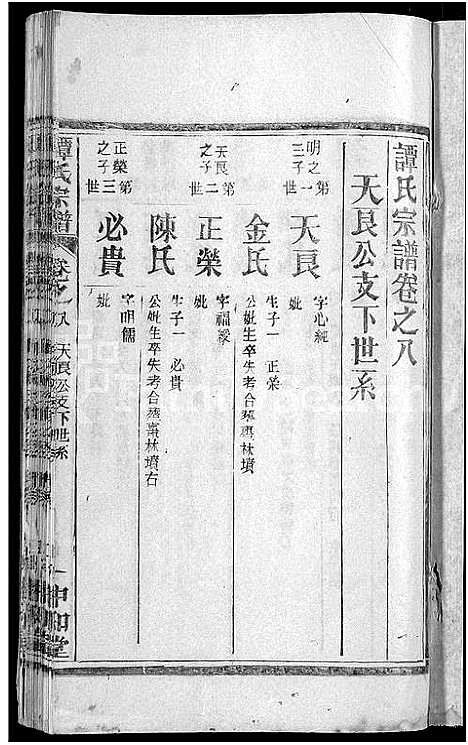 譚氏宗譜卷之八
天良公支下世系
第一世
明之三子
天良
字心純
妣
金氏
生子一 正榮
公妣生卒失考合葬棗林墳
第二世
天良之子
正榮
字福緣
妣
陳氏
生子一 必貴
公妣生卒失考合葬棗林墳右
第三世
正榮之子
必貴
字明儒
妣
譚氏宗譜
卷之八
天良公支下世系
一
中和堂